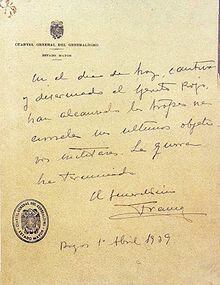 CUARTEL GENERAL DEL GENERALISIMO
ESTADO MAYOR
En el dia de hoy, cautivo
y desarmado el Ejercito Rojo,
han alcanzado las tropas na-
cionales sus ultimos objeti-
vos militares. La guerra
ha terminado.
El Generalisimo
Franco
Burgos 1º Abril 1939
CUARTEL GENERAL DEL GENERALISIMO
ESTADO MAYOR